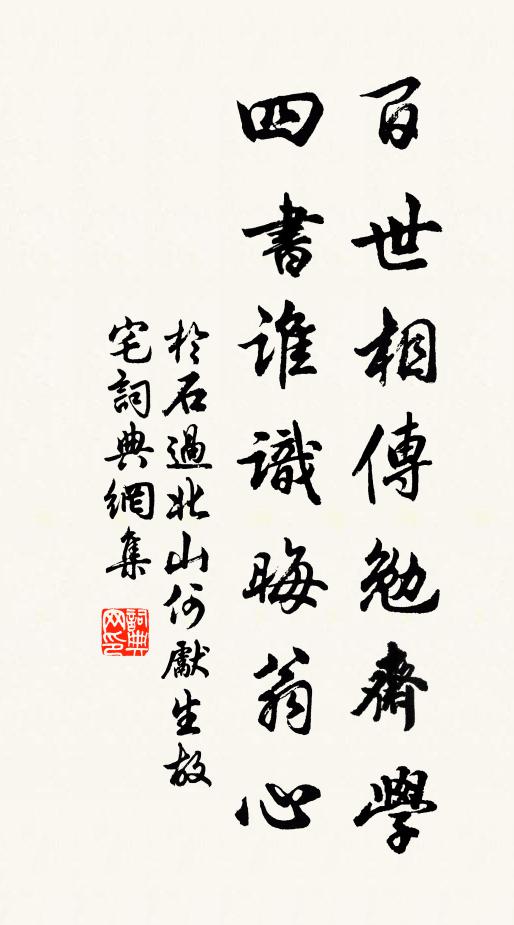 百世相傳勉齋學
四書誰識晦翁心
於石過北山何獻生故
宅詞典網集
詞典網印